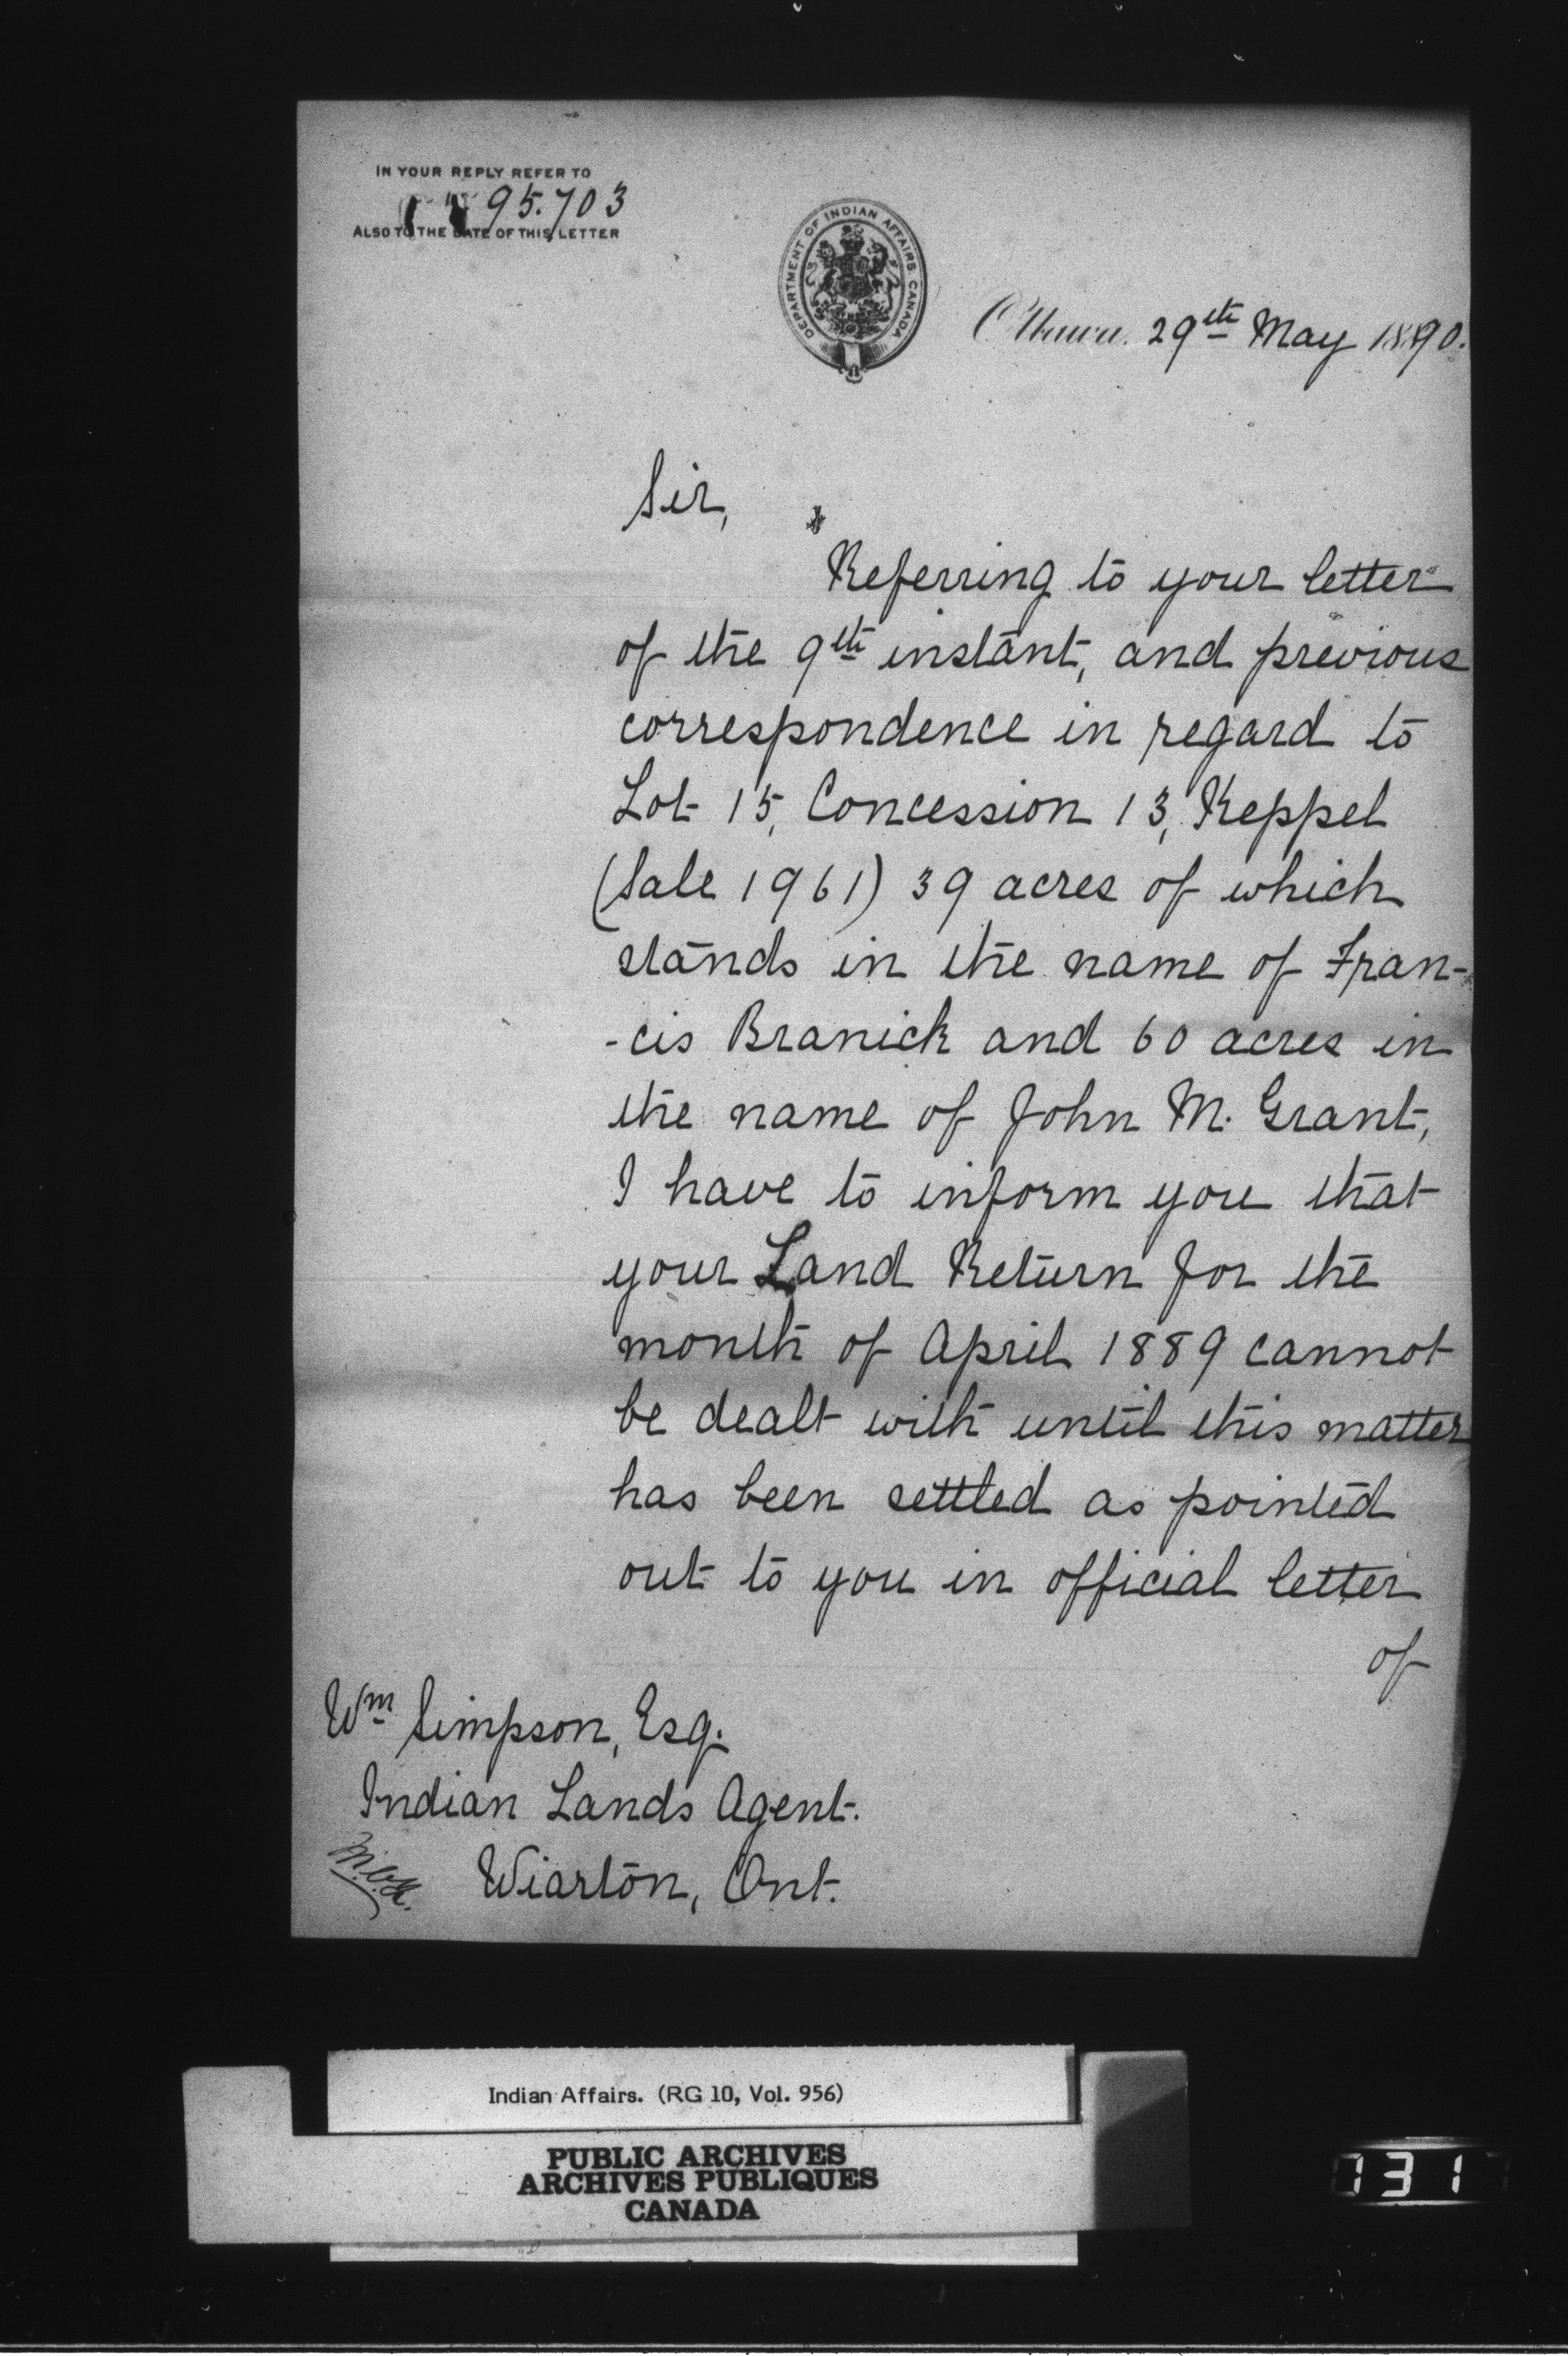 IN YOUR REPLY REFER TO
95.703
ALSO TO THE DATE OF THIS LETTER
DEPARTMENT OF INDIAN AFFAIRS. CANADA
Ottawa. 29th May 1890.
Sir,
Referring to your letter
of the 9th instant, and previous
correspondence in regard to
Lot 15, Concession 13, Keppel
(Sale 1961) 39 acres of which
stands in the name of Fran-
-cis Branick and 60 acres in
the name of John M. Grant,
I have to inform you that
your Land Return for the
month of April 1889 cannot
be dealt with until this matter
has been settled as pointed
out to you in official letter
of
Wm Simpson, Esq.
Indian Lands Agent.
Wiarton, Ont.
Indian Affairs. (RG 10, Vol. 956)
PUBLIC ARCHIVES
ARCHIVES PUBLIQUES
CANADA
131